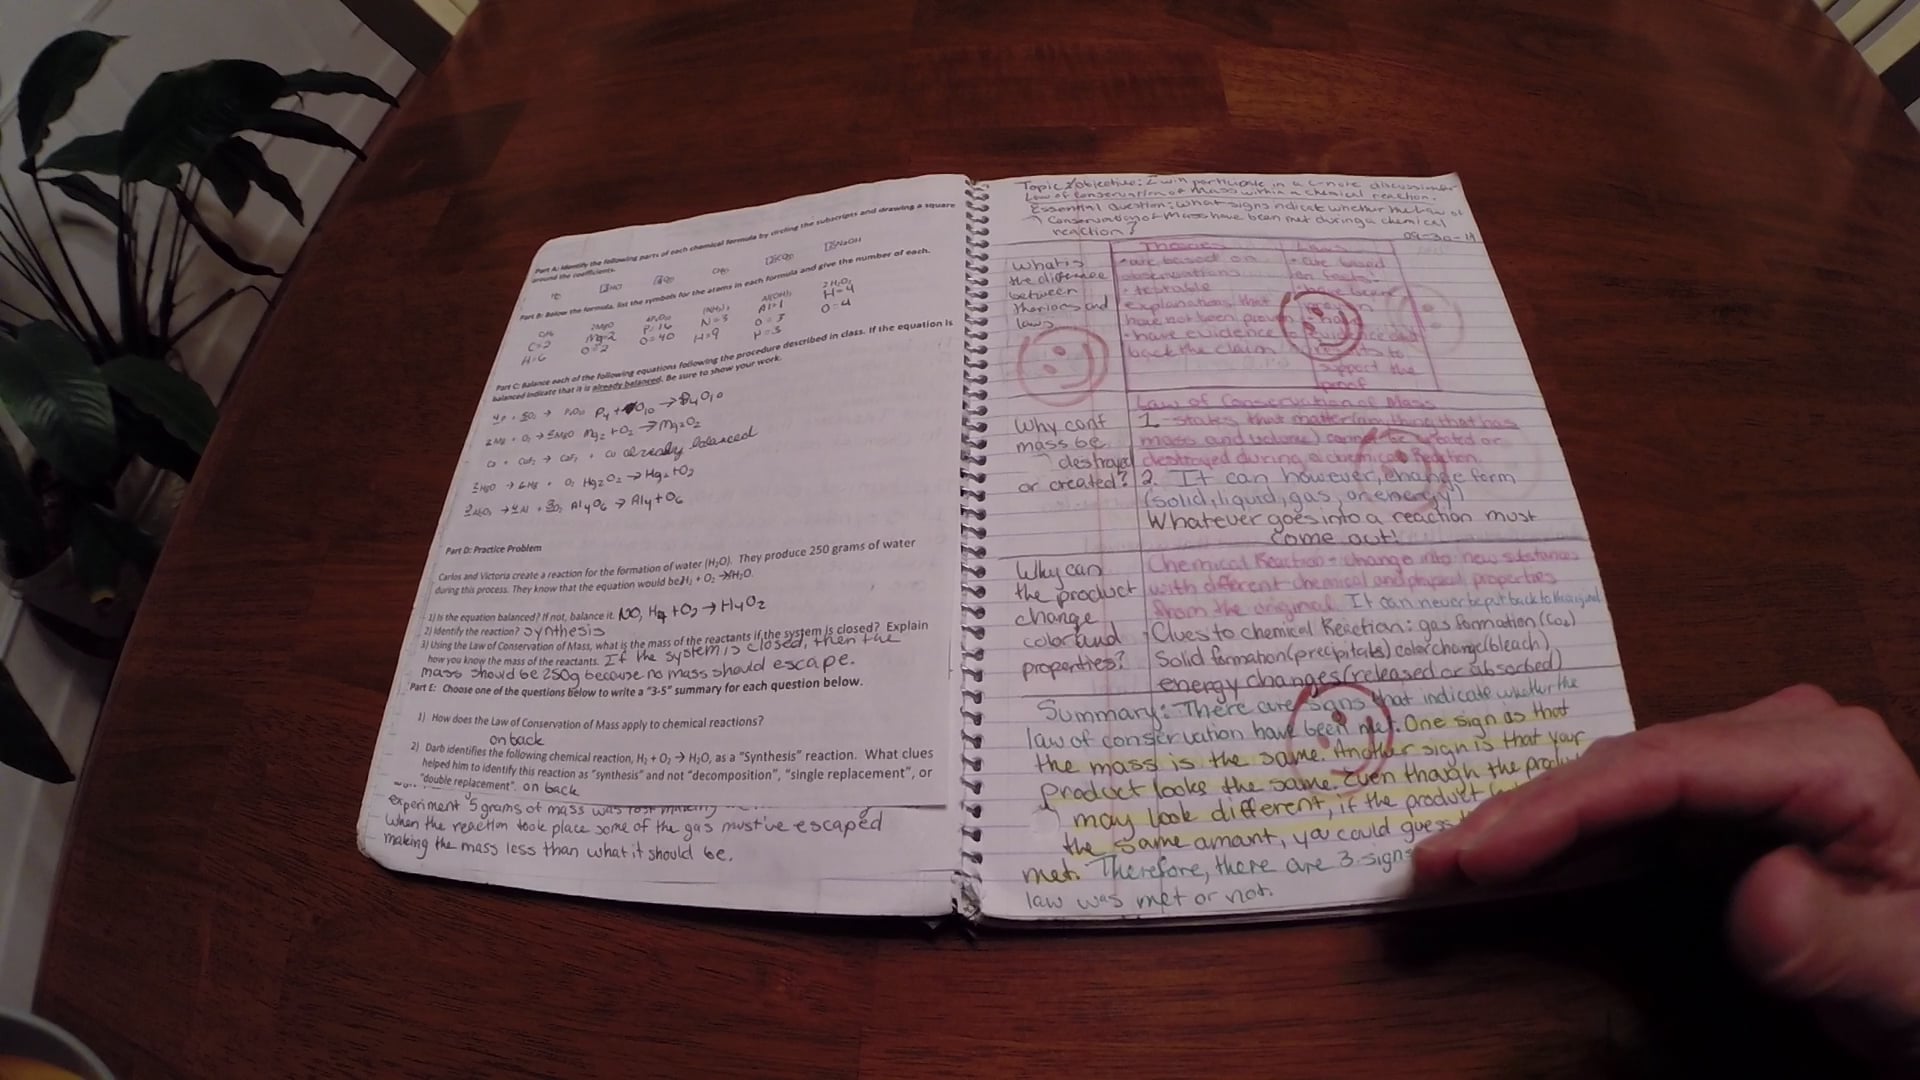 Part A: Identify the following parts of each chemical formula by circling the subscripts and drawing a square
around the coefficients.
Part B: Below the formula, list the symbols for the atoms in each formula and give the number of each.
C=2
H=6
2MgO
Mg=2
O=2
P=16
O=40
N=3
H=9
Al(OH)3
Al=1
O=3
H=3
2H2O2
H=4
O=4
Part C: Balance each of the following equations following the procedure described in class. If the equation is
balanced indicate that it is already balanced. Be sure to show your work.
→ P4O10
→ 2MgO Mg2+O2→Mg2O2
already balanced
Hg2O2→Hg2+O2
Al4O6→Al4+O6
Part D: Practice Problem
Carlos and Victoria create a reaction for the formation of water (H2O). They produce 250 grams of water
during this process. They know that the equation would be
1) Is the equation balanced? If not, balance it. NO, H4+O2→H4O2
2) Identify the reaction? synthesis
3) Using the Law of Conservation of Mass, what is the mass of the reactants if the system is closed? Explain
how you know the mass of the reactants. If the system is closed, then the
mass should be 250g because no mass should escape.
Part E: Choose one of the questions below to write a "3-5" summary for each question below.
1) How does the Law of Conservation of Mass apply to chemical reactions?
on back
2) Darb identifies the following chemical reaction, H2 + O2 → H2O, as a "Synthesis" reaction. What clues
helped him to identify this reaction as "synthesis" and not "decomposition", "single replacement", or
"double replacement". on back
experiment 5 grams of mass was lost making
when the reaction took place some of the gas must've escaped
making the mass less than what it should be.
Topic/Objective: I will participate in a c-note discussion
Law of Conservation of Mass within a chemical reaction.
Essential Question: What signs indicate whether the Law of
Conservation of Mass have been met during a chemical
reaction?
What is
the difference
between
theories and
laws
Theories
•are based on
observations
•testable
explanations that
have not been proven
•have evidence
back the claim
Laws
•are based
on facts
•have been
support the
proof
Why cant
mass be
destroyed
or created?
Law of Conservation of Mass
1. States that matter(anything that has
mass and volume) cannot be created or
destroyed during a chemical Reaction.
2. It can however, change form
(solid, liquid, gas, or energy)
Whatever goes into a reaction must
come out!
Why can
the product
change
color and
properties?
Chemical Reaction - change into new substances
with different chemical and physical properties
from the original. It can never be put back to the original
Clues to chemical Reaction: gas formation (Co2)
Solid formation(precipitate) color change(bleach)
energy changes(released or absorbed)
Summary: There are signs that indicate whether the
law of conservation have been met. One sign as that
the mass is the same. Another sign is that your
product looks the same. Even though the product
may look different, if the product
the same amount, you could guess
met. Therefore, there are 3 signs
law was met or not.